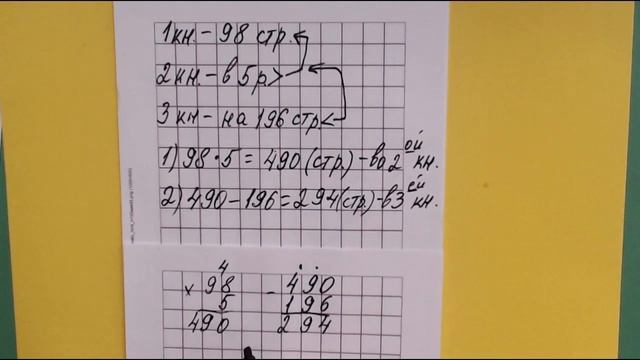 1 кн. – 98 стр.
2 кн. – в 5 р. >
3 кн – на 196 стр <
1) 98 · 5 = 490 (стр.) – во 2 ой кн.
2) 490 – 196 = 294 (стр.) – в 3 ей кн.
4
× 98
5
490
– 490
196
294